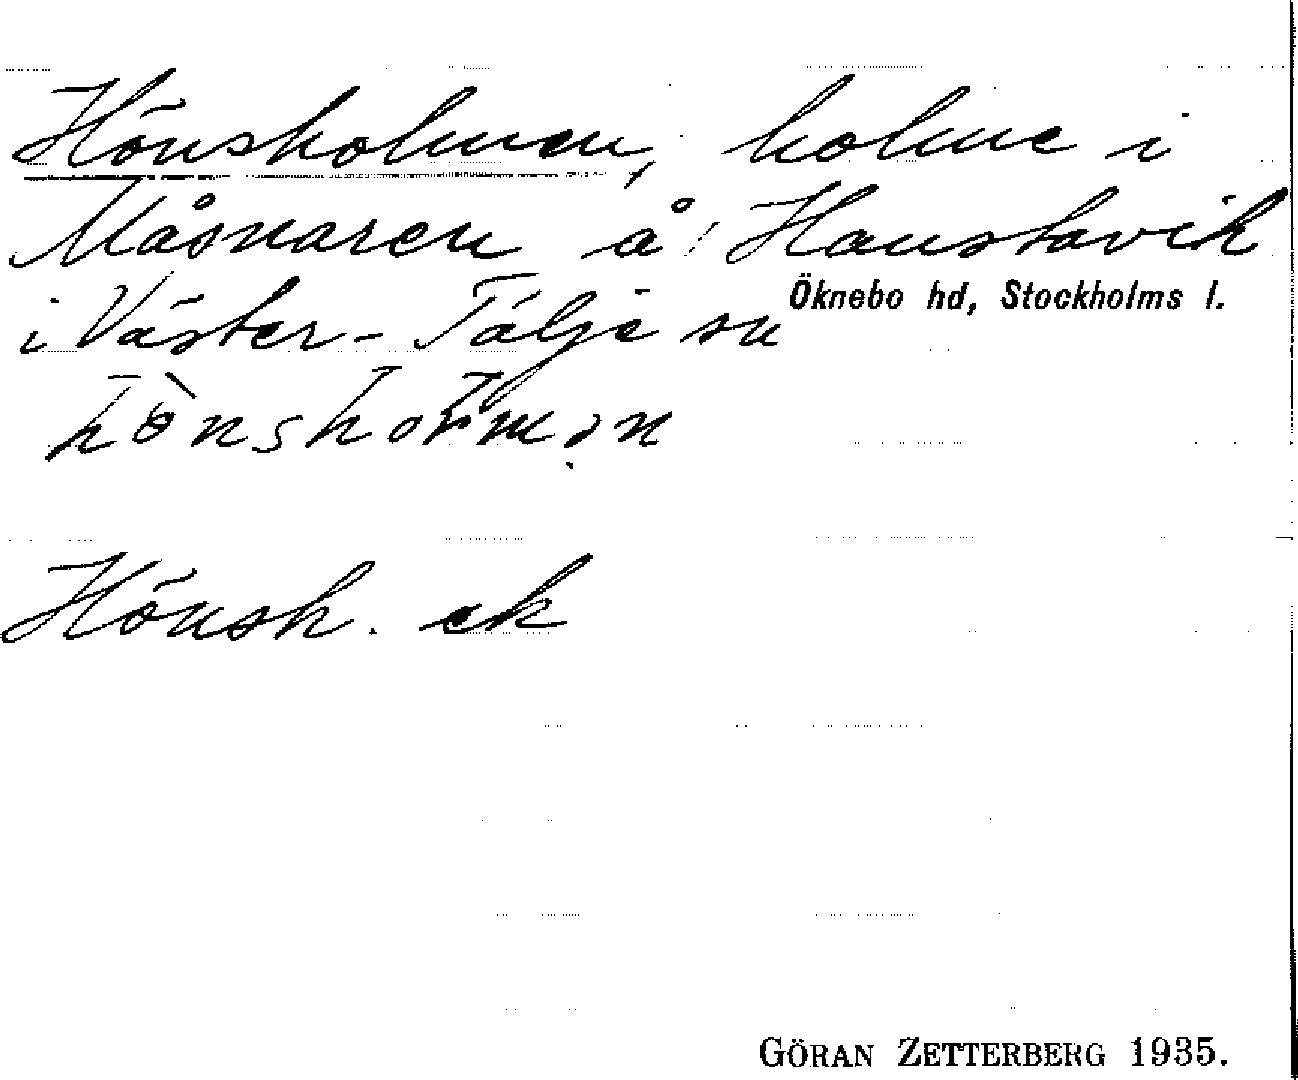 Hönsholmen, holme i
Måsnaren å Hanstavik
i Väster-Tälje sn
Öknebo hd, Stockholms l.
Hönsh. ek
GÖRAN ZETTERBERG 1935.